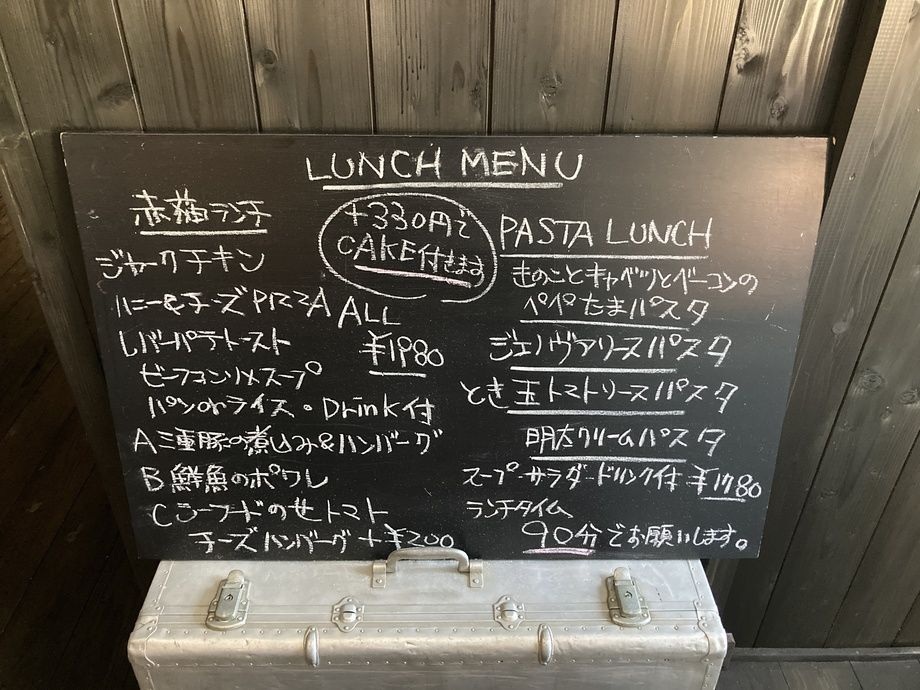 LUNCH MENU
赤猫ランチ
ジャークチキン
ハニー&チーズPIZZA
レバーパテトースト
ビーフコンソメスープ
パンorライス・Drink付
A 三重豚の煮込み&ハンバーグ
B 鮮魚のポワレ
C シーフードのせトマト
チーズハンバーグ+¥200
+330円で
CAKE付きます
ALL
¥1980
PASTA LUNCH
きのことキャベツとベーコンの
ペペたまパスタ
ジェノヴァソースパスタ
とき玉トマトソースパスタ
明太クリームパスタ
スープ・サラダ・ドリンク付 ¥1780
ランチタイム
90分でお願いします。